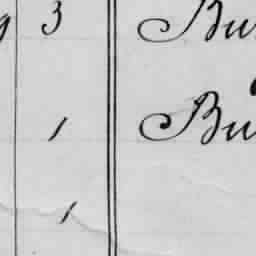 3 Bu
1 Bu
1